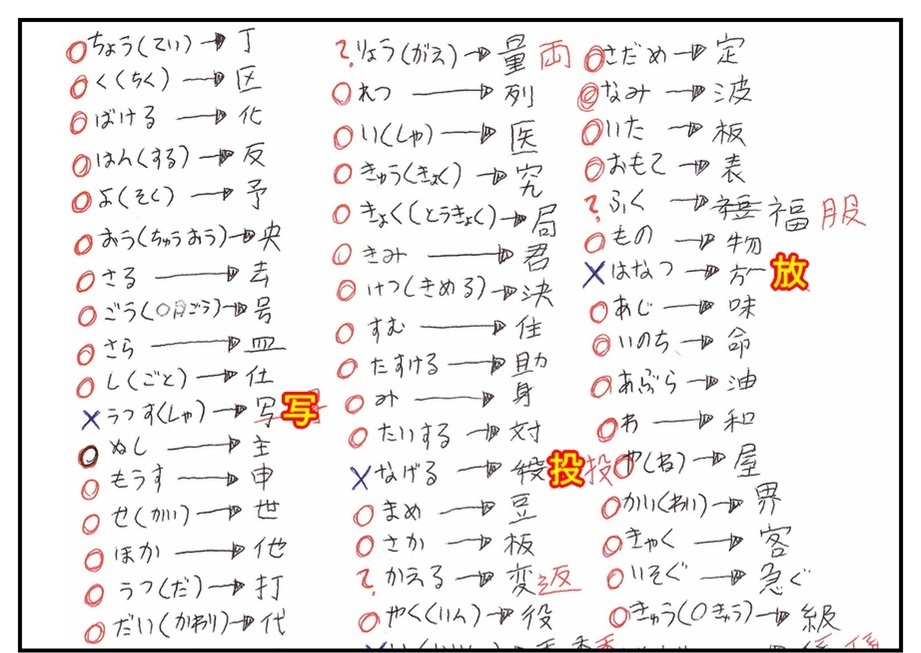 ちょう(てい)→丁
く(ちく)→区
ばける→化
はん(する)→反
よ(そく)→予
おう(ちゅうおう)→央
さる→去
ごう(○月ごう)→号
さら→皿
し(ごと)→仕
うつす(しゃ)→写 写
ぬし→主
もうす→申
せ(かい)→世
ほか→他
うつ(だ)→打
だい(かわり)→代
?りょう(がえ)→量 両
れつ→列
い(しゃ)→医
きゅう(きょく)→究
きょく(とうきょく)→局
きみ→君
けつ(きめる)→決
すむ→住
たすける→助
み→身
たいする→対
なげる→役 投 投
まめ→豆
さか→板
?かえる→変 返
やく(いん)→役
さだめ→定
なみ→波
いた→板
おもて→表
?ふく→福 服
もの→物
はなつ→方 放
あじ→味
いのち→命
あぶら→油
わ→和
や(ね)→屋
かい(わい)→界
きゃく→客
いそぐ→急ぐ
きゅう(○きゅう)→級